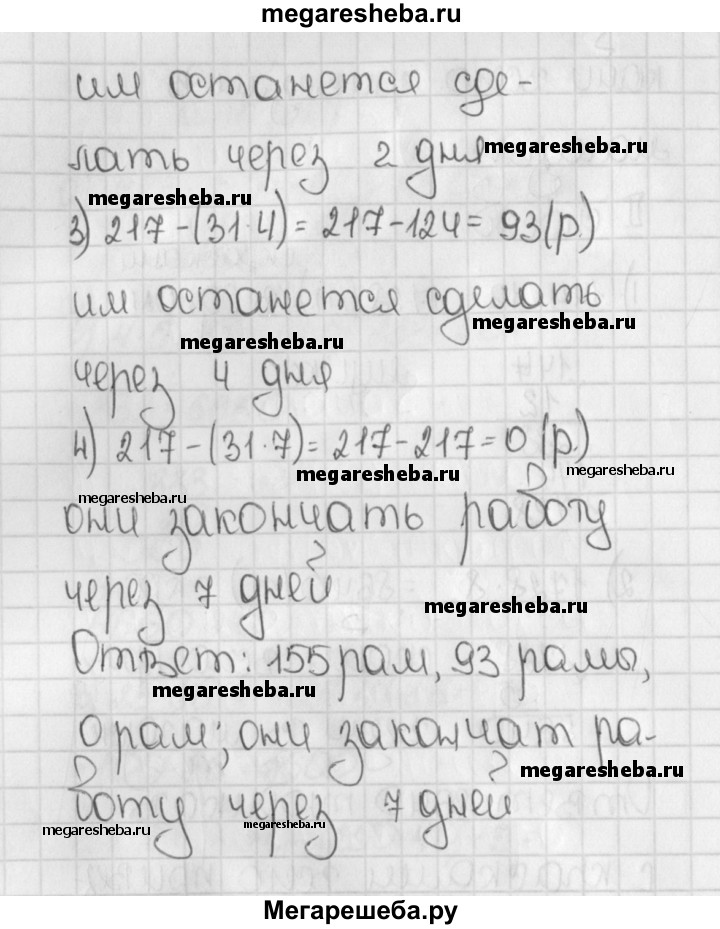 megaresheba.ru
им останется сде-
лать через 2 дня megaresheba.ru
megaresheba.ru
3) 217-(31·4)=217-124=93(р.)
им останется сделать
megaresheba.ru
megaresheba.ru
через 4 дня
4) 217-(31·7)=217-217=0(р.)
megaresheba.ru
megaresheba.ru
megaresheba.ru
они закончать работу
через 7 дней
megaresheba.ru
Ответ: 155 рам, 93 рамы,
megaresheba.ru
0 рам; они закончат ра-
megaresheba.ru
боту через 7 дней
megaresheba.ru
megaresheba.ru
Мегарешеба.ру